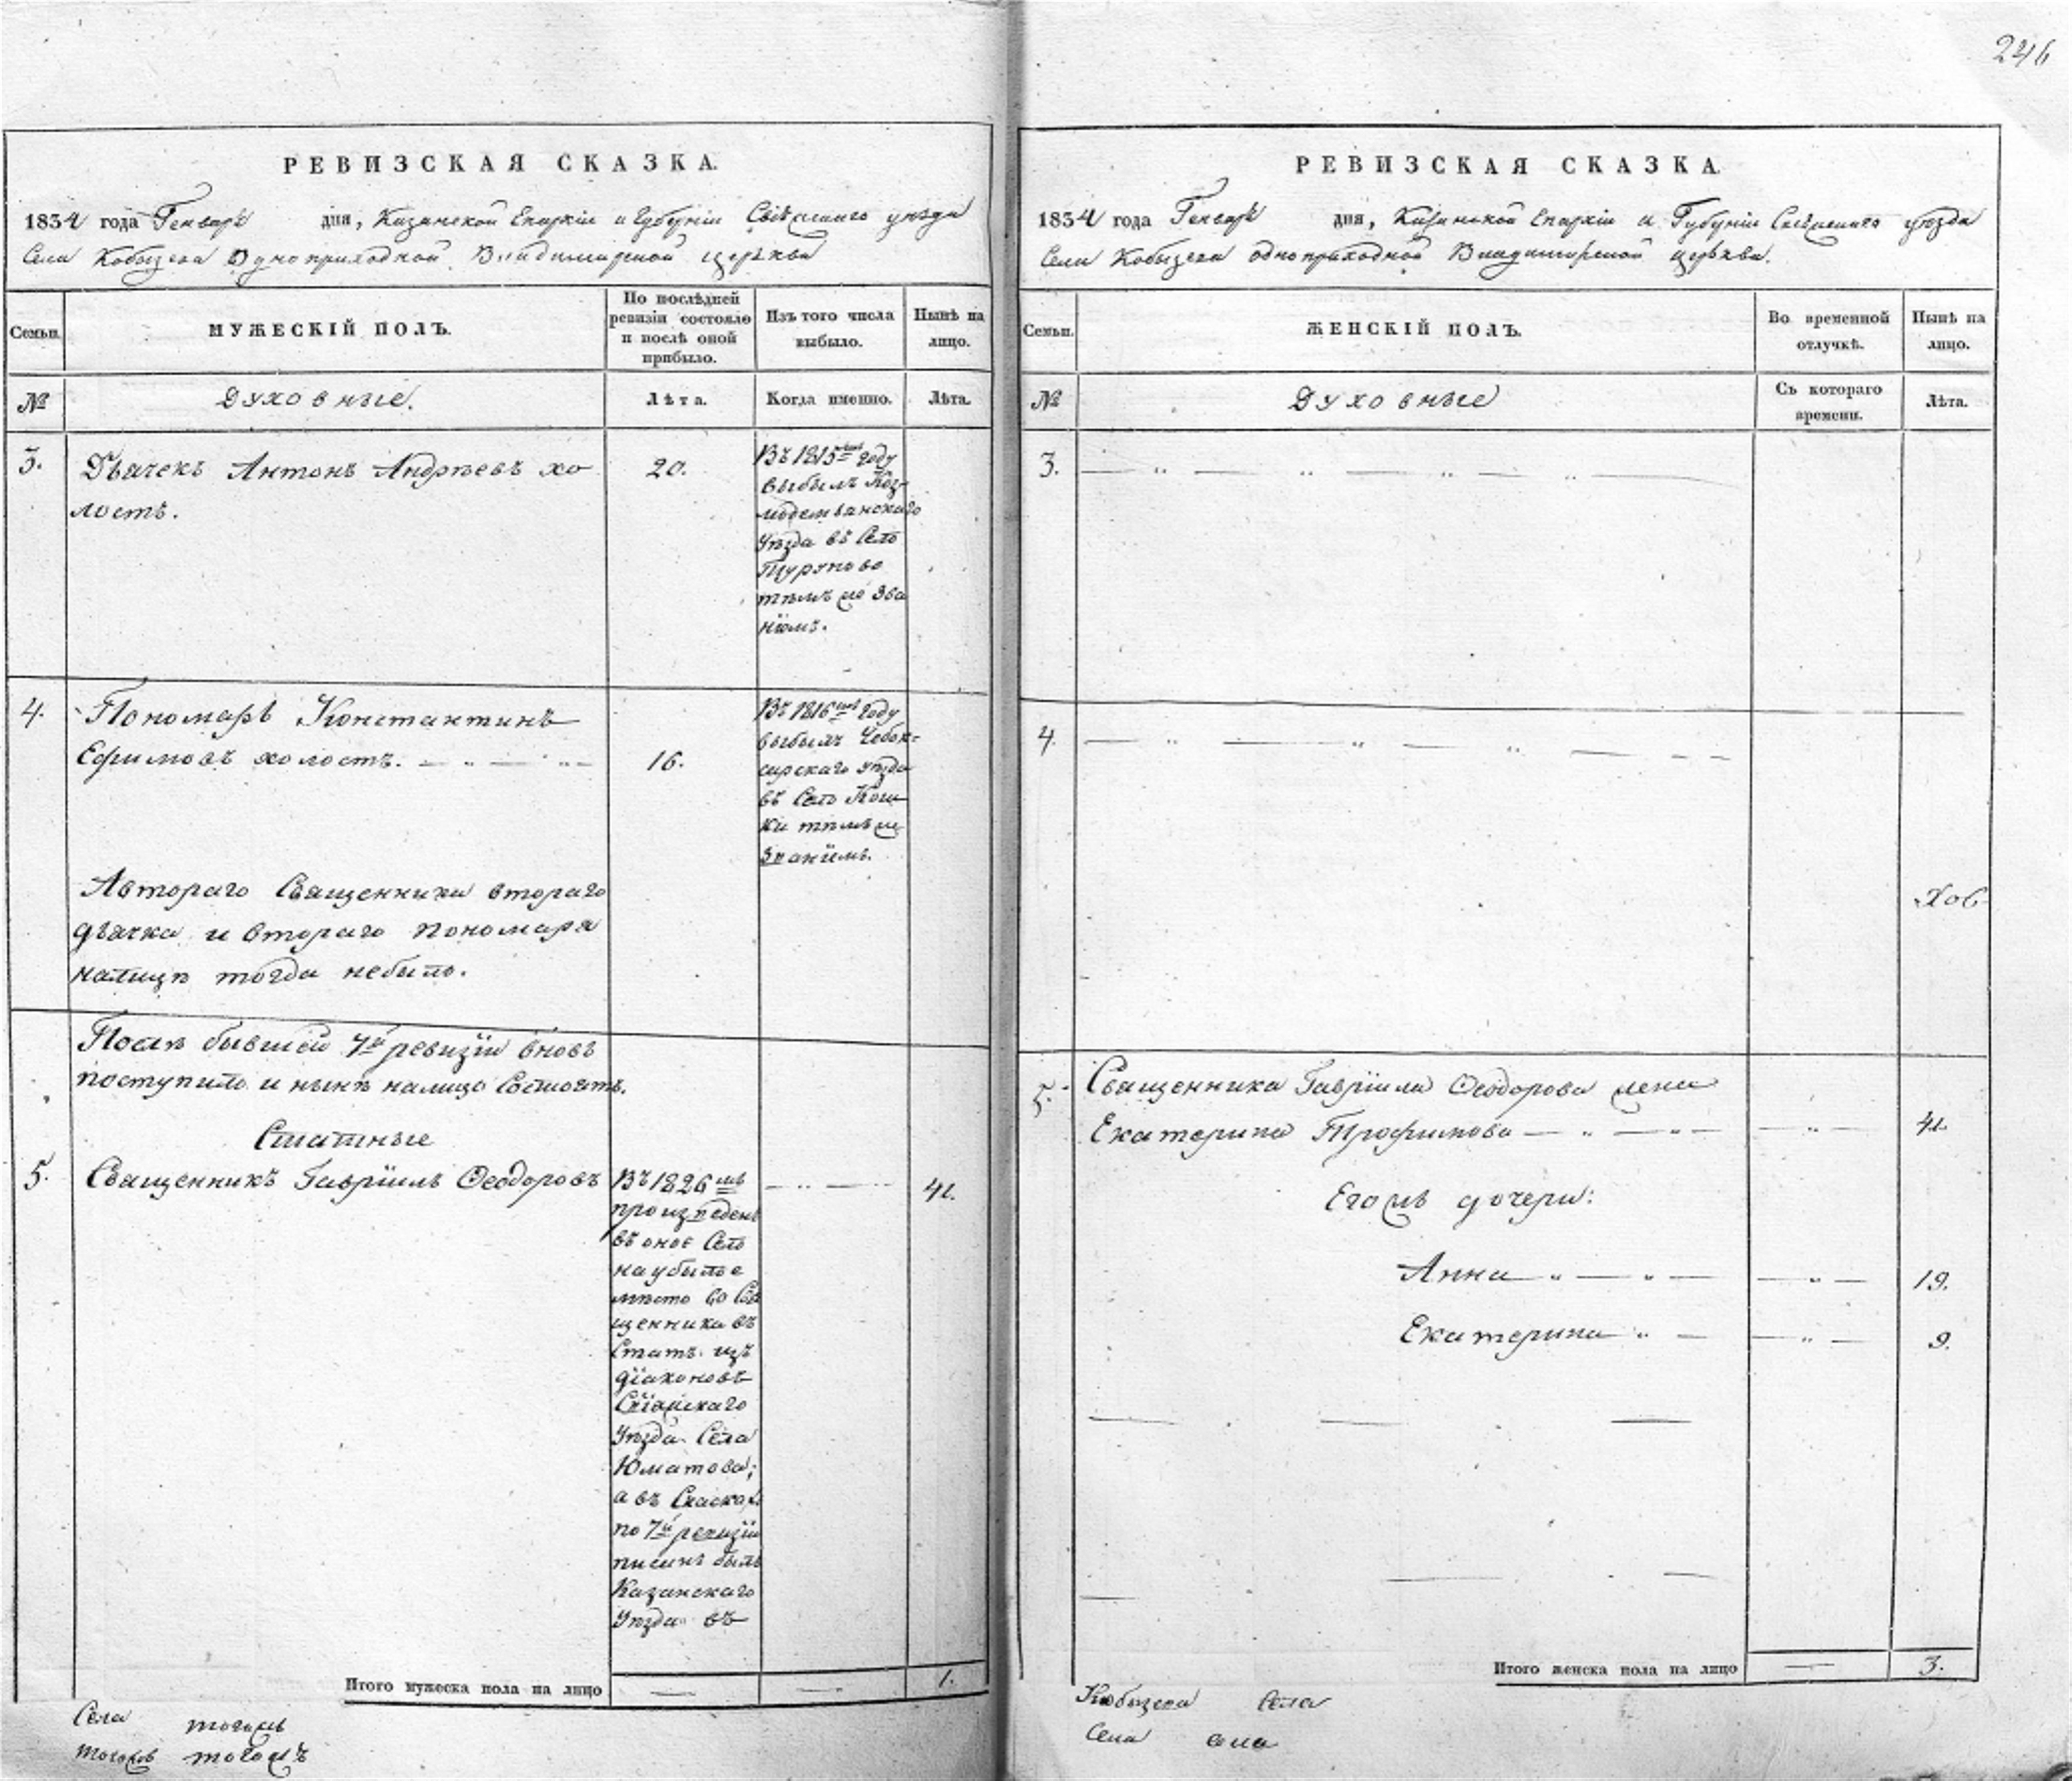 246
РЕВИЗСКАЯ СКАЗКА.
1834 года Генваря дня, Казанской Епархіи и Губерніи Свіяжскаго уезда
Села Кобызева Одноприходной Владимирской церкви
Семьи.
МУЖЕСКІЙ ПОЛЪ.
По послѣдней ревизіи состояло и послѣ оной прибыло.
Изъ того числа выбыло.
Нынѣ на лицо.
№
Духовные.
Лѣта.
Когда именно.
Лѣта.
3.
Дьячекъ Антонъ Андреевъ хо
лостъ.
20.
Въ 1815мъ году
выбылъ Коз-
модемьянскаго
Уезда въ Село
Шуруново
темъ же зва
ніемъ.
4.
Пономарь Константинъ
Ефимовъ холостъ.
16.
Въ 1816мъ году
выбылъ Чебок-
сарскаго уезда
въ Село
темъ же
званіемъ.
Автораго Священника втораго
дьячка и втораго пономаря
налице тогда небыло.
После бывшей 7й ревизіи вновь
поступило и ныне налицо Состоитъ.
Статные
5.
Священникъ Гавріилъ Феодоровъ
Въ 1826мъ
произведенъ
въ оное Село
на убылое
место во Свя
щенника въ
Статъ изъ
діаконовъ
Уезда Села
Юматова;
а въ Сказкахъ
по 7й ревизіи
писанъ былъ
Казанскаго
Уезда въ
41.
Итого мужеска пола на лицо
1.
Села тогожъ
тогожъ
РЕВИЗСКАЯ СКАЗКА.
1834 года Генваря дня, Казанской Епархіи и Губерніи Свіяжскаго уезда
Села Кобызева одноприходной Владимирской церкви.
Семьи.
ЖЕНСКІЙ ПОЛЪ.
Во временной отлучкѣ.
Нынѣ на лицо.
№
Духовные
Съ котораго времени.
Лѣта.
3.
4.
5.
Священника Гавріила Феодорова жена
Екатерина Трофимова
41.
Его жъ дочери:
Анна
19.
Екатерина
9.
Итого женска пола на лицо
3.
Кобызева Села
Села села